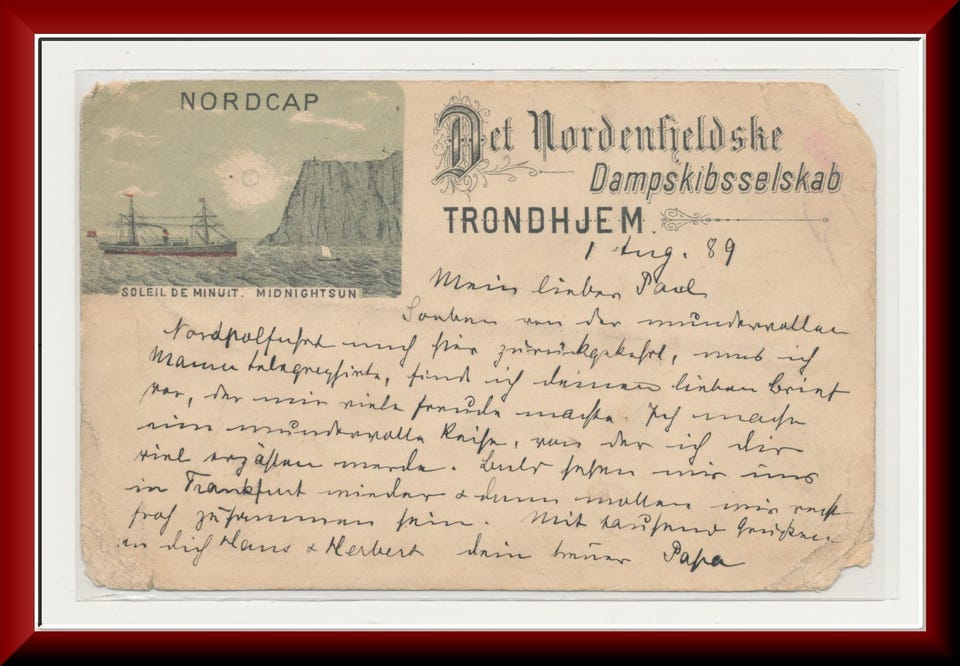 NORDCAP
SOLEIL DE MINUIT. MIDNIGHTSUN
Det Nordenfjeldske
Dampskibsselskab
TRONDHJEM.
1 Aug. 89
Mein lieber Paul
Soeben von der wundervollen
Nordpolfahrt nach hier zurückgekehrt, was ich
Mama telegraphirte, finde ich deinen lieben Brief
vor, der mir viele Freude machte. Ich mache
eine wundervolle Reise, von der ich dir
viel erzählen werde. Bald sehen wir uns
in Frankfurt wieder & dann wollen wir recht
froh zusammen sein. Mit tausend Grüßen
an dich Hans & Herbert dein treuer Papa